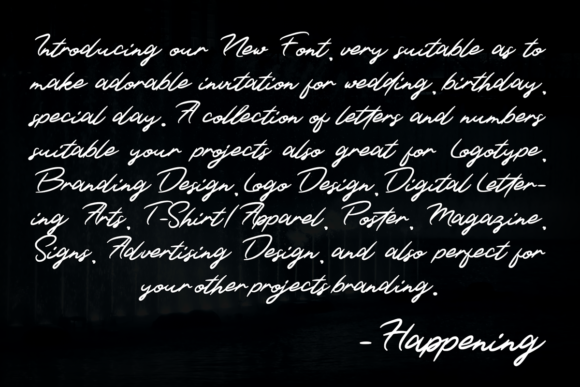 Introducing our New Font, very suitable as to
make adorable invitation for wedding, birthday,
special day. A collection of letters and numbers
suitable your projects also great for Logotype,
Branding Design, Logo Design, Digital Letter-
ing Arts, T-Shirt/Apparel, Poster, Magazine,
Signs, Advertising Design, and also perfect for
your other projects branding.
- Happening